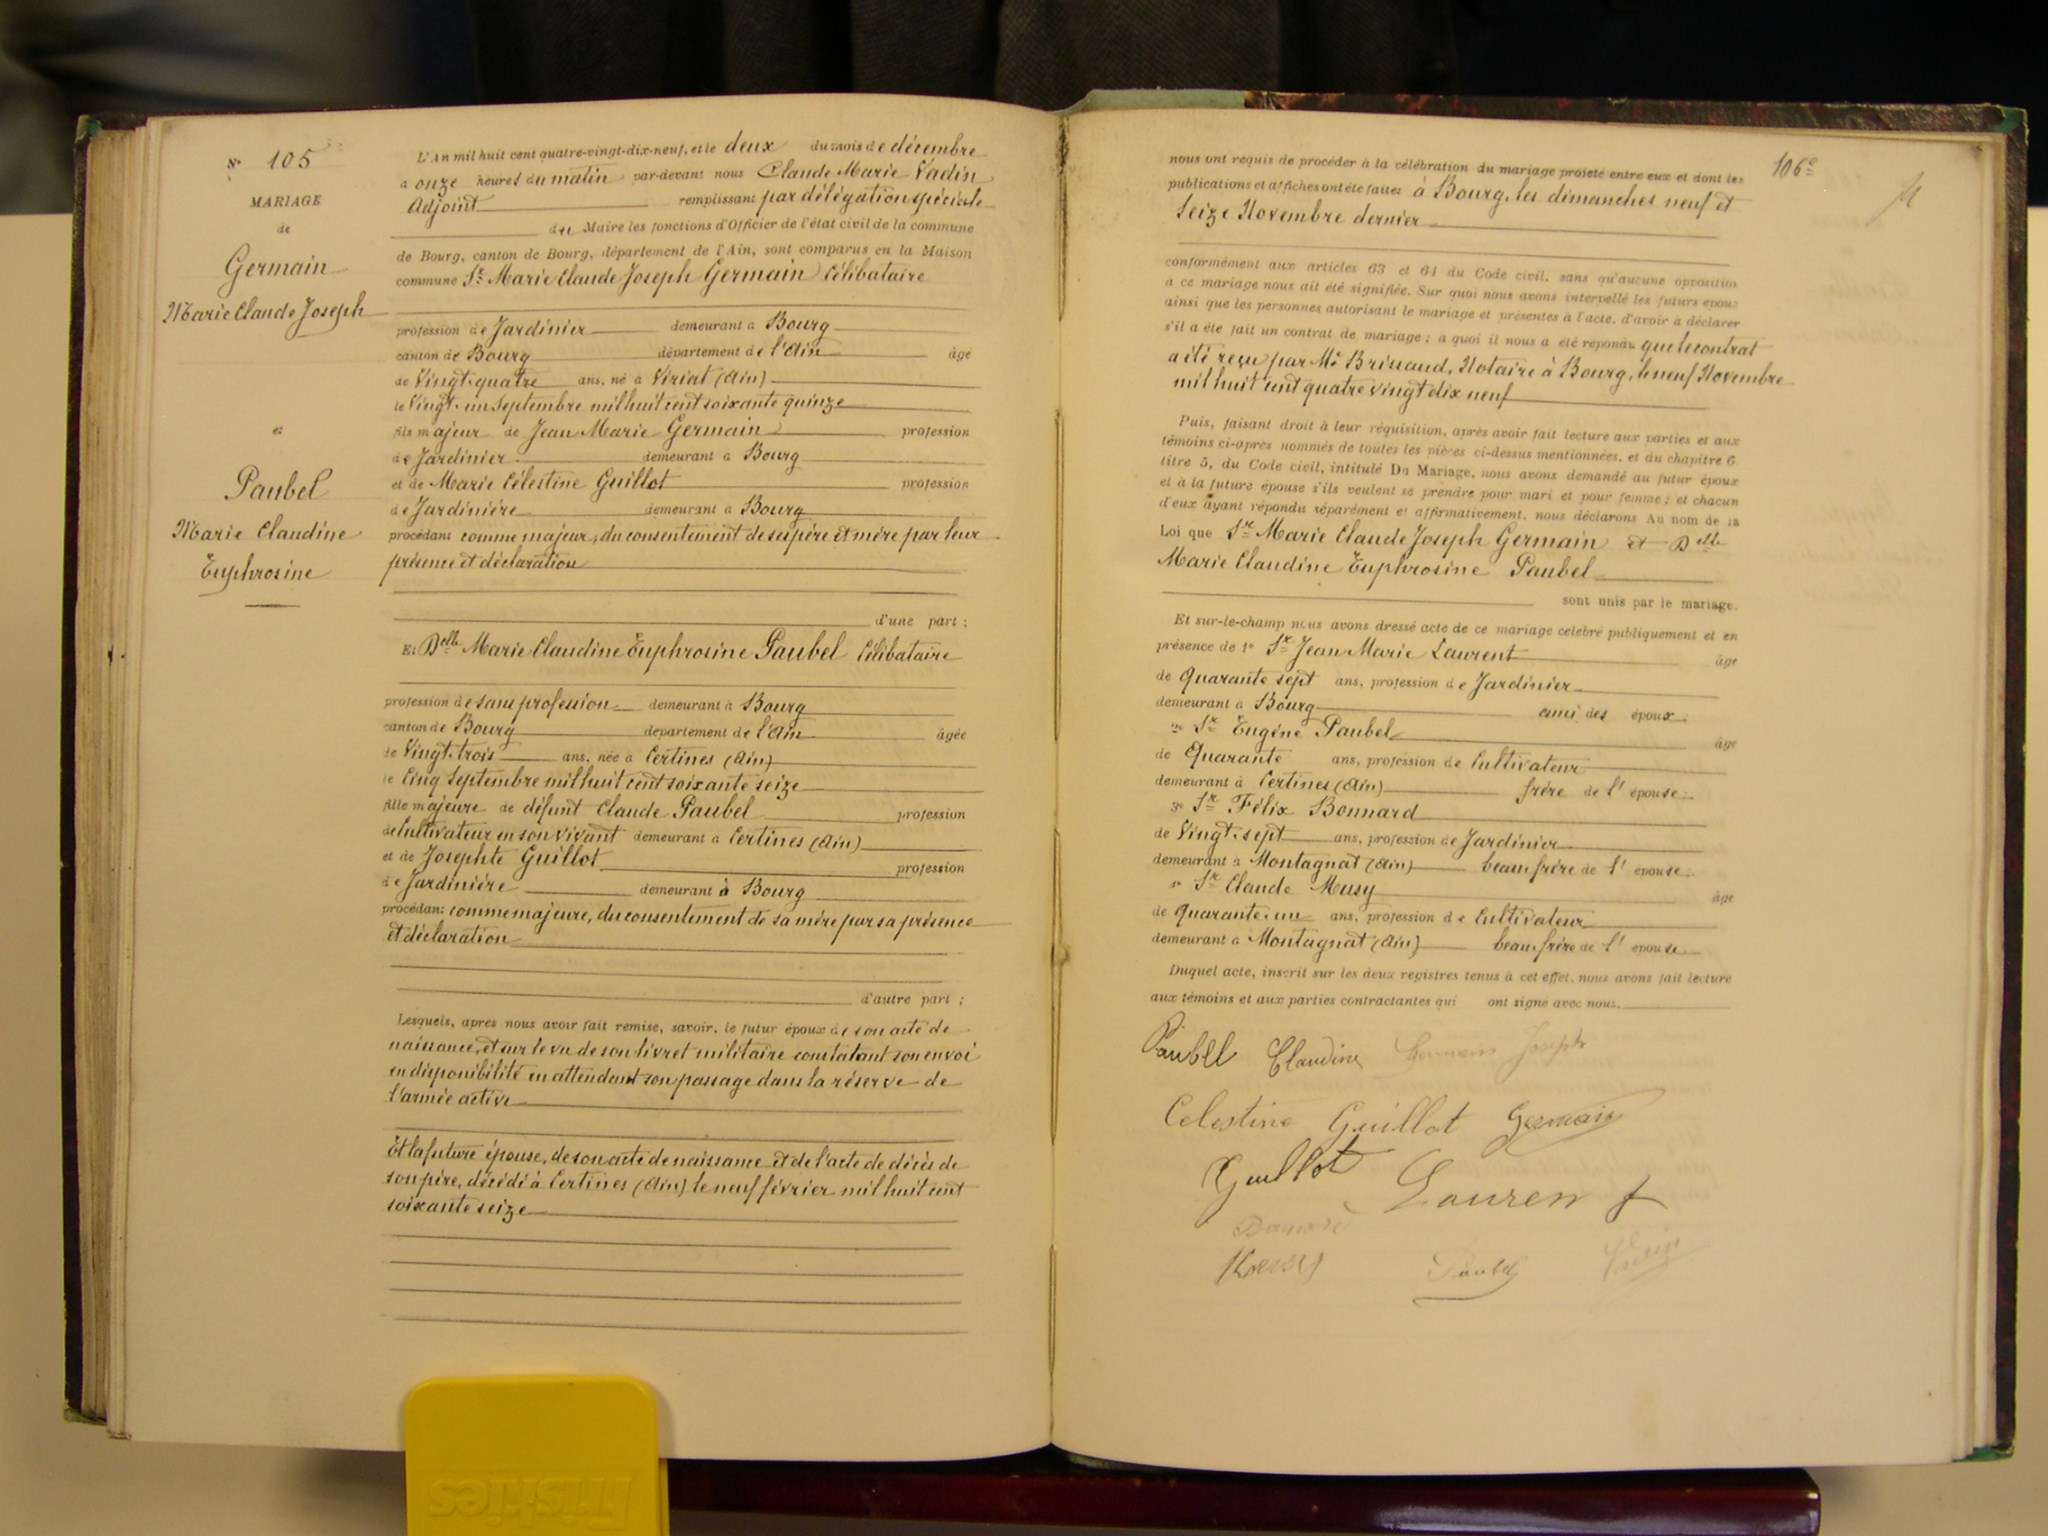 N° 105
MARIAGE
de
Germain
Marie Claude Joseph
et
Paubel
Marie Claudine
Euphrosine
L'An mil huit cent quatre-vingt-dix-neuf, et le deux du mois de décembre
à onze heures du matin par-devant nous Claude Marie Vadin
Adjoint remplissant par délégation spéciale
du Maire les fonctions d'Officier de l'état civil de la commune
de Bourg, canton de Bourg, département de l'Ain, sont comparus en la Maison
commune Sr Marie Claude Joseph Germain Célibataire
profession de Jardinier demeurant à Bourg
canton de Bourg département de l'Ain âgé
de Vingt-quatre ans, né à Viriat (Ain)
le Vingt-un Septembre mil huit cent soixante quinze
fils majeur de Jean Marie Germain profession
de Jardinier demeurant à Bourg
et de Marie Célestine Guillot profession
de Jardinière demeurant à Bourg
procédant comme majeur, du consentement de ses père et mère par leur
présence et déclaration
d'une part ;
Et Delle Marie Claudine Euphrosine Paubel Célibataire
profession de sans profession demeurant à Bourg
canton de Bourg département de l'Ain âgée
de Vingt-trois ans, née à Certines (Ain)
le Cinq Septembre mil huit cent soixante seize
fille majeure de défunt Claude Paubel profession
de Cultivateur en son vivant demeurant à Certines (Ain)
et de Josephte Guillot profession
de Jardinière demeurant à Bourg
procédant comme majeure, du consentement de sa mère par sa présence
et déclaration
d'autre part ;
Lesquels, après nous avoir fait remise, savoir, le futur époux de son acte de
naissance, et sur le vu de son livret militaire constatant son envoi
en disponibilité en attendant son passage dans la réserve de
l'armée active
Et la future épouse, de son acte de naissance et de l'acte de décès de
son père, décédé à Certines (Ain) le neuf février mil huit cent
soixante seize
106e
nous ont requis de procéder à la célébration du mariage projeté entre eux et dont les
publications et affiches ont été faites à Bourg, les dimanches neuf et
Seize Novembre dernier
conformément aux articles 63 et 64 du Code civil, sans qu'aucune opposition
à ce mariage nous ait été signifiée. Sur quoi nous avons interpellé les futurs époux
ainsi que les personnes autorisant le mariage et présentes à l'acte, d'avoir à déclarer
s'il a été fait un contrat de mariage ; à quoi il nous a été répondu que le contrat
a été reçu par Me Brinaud, Notaire à Bourg, le neuf Novembre
mil huit cent quatre vingt dix neuf
Puis, faisant droit à leur réquisition, après avoir fait lecture aux parties et aux
témoins ci-après nommés de toutes les pièces ci-dessus mentionnées, et du chapitre 6
titre 5, du Code civil, intitulé Du Mariage, nous avons demandé au futur époux
et à la future épouse s'ils veulent se prendre pour mari et pour femme ; et chacun
d'eux ayant répondu séparément et affirmativement, nous déclarons Au nom de la
Loi que Sr Marie Claude Joseph Germain et Delle
Marie Claudine Euphrosine Paubel
sont unis par le mariage.
Et sur-le-champ nous avons dressé acte de ce mariage célébré publiquement et en
présence de 1° Sr Jean Marie Laurent âgé
de Quarante sept ans, profession de Jardinier
demeurant à Bourg ami des époux
2° Sr Eugène Paubel âgé
de Quarante ans, profession de Cultivateur
demeurant à Certines (Ain) frère de l'épouse
3° Sr Félix Bonnard
de Vingt-sept ans, profession de Jardinier
demeurant à Montagnat (Ain) beau frère de l'épouse
Sr Claude Musy âgé
de Quarante-un ans, profession de Cultivateur
demeurant à Montagnat (Ain) beau frère de l'épouse
Duquel acte, inscrit sur les deux registres tenus à cet effet, nous avons fait lecture
aux témoins et aux parties contractantes qui ont signé avec nous.
Paubel Claudine Germain Joseph
Celestine Guillot Germain
Guillot Laurent
Paubel